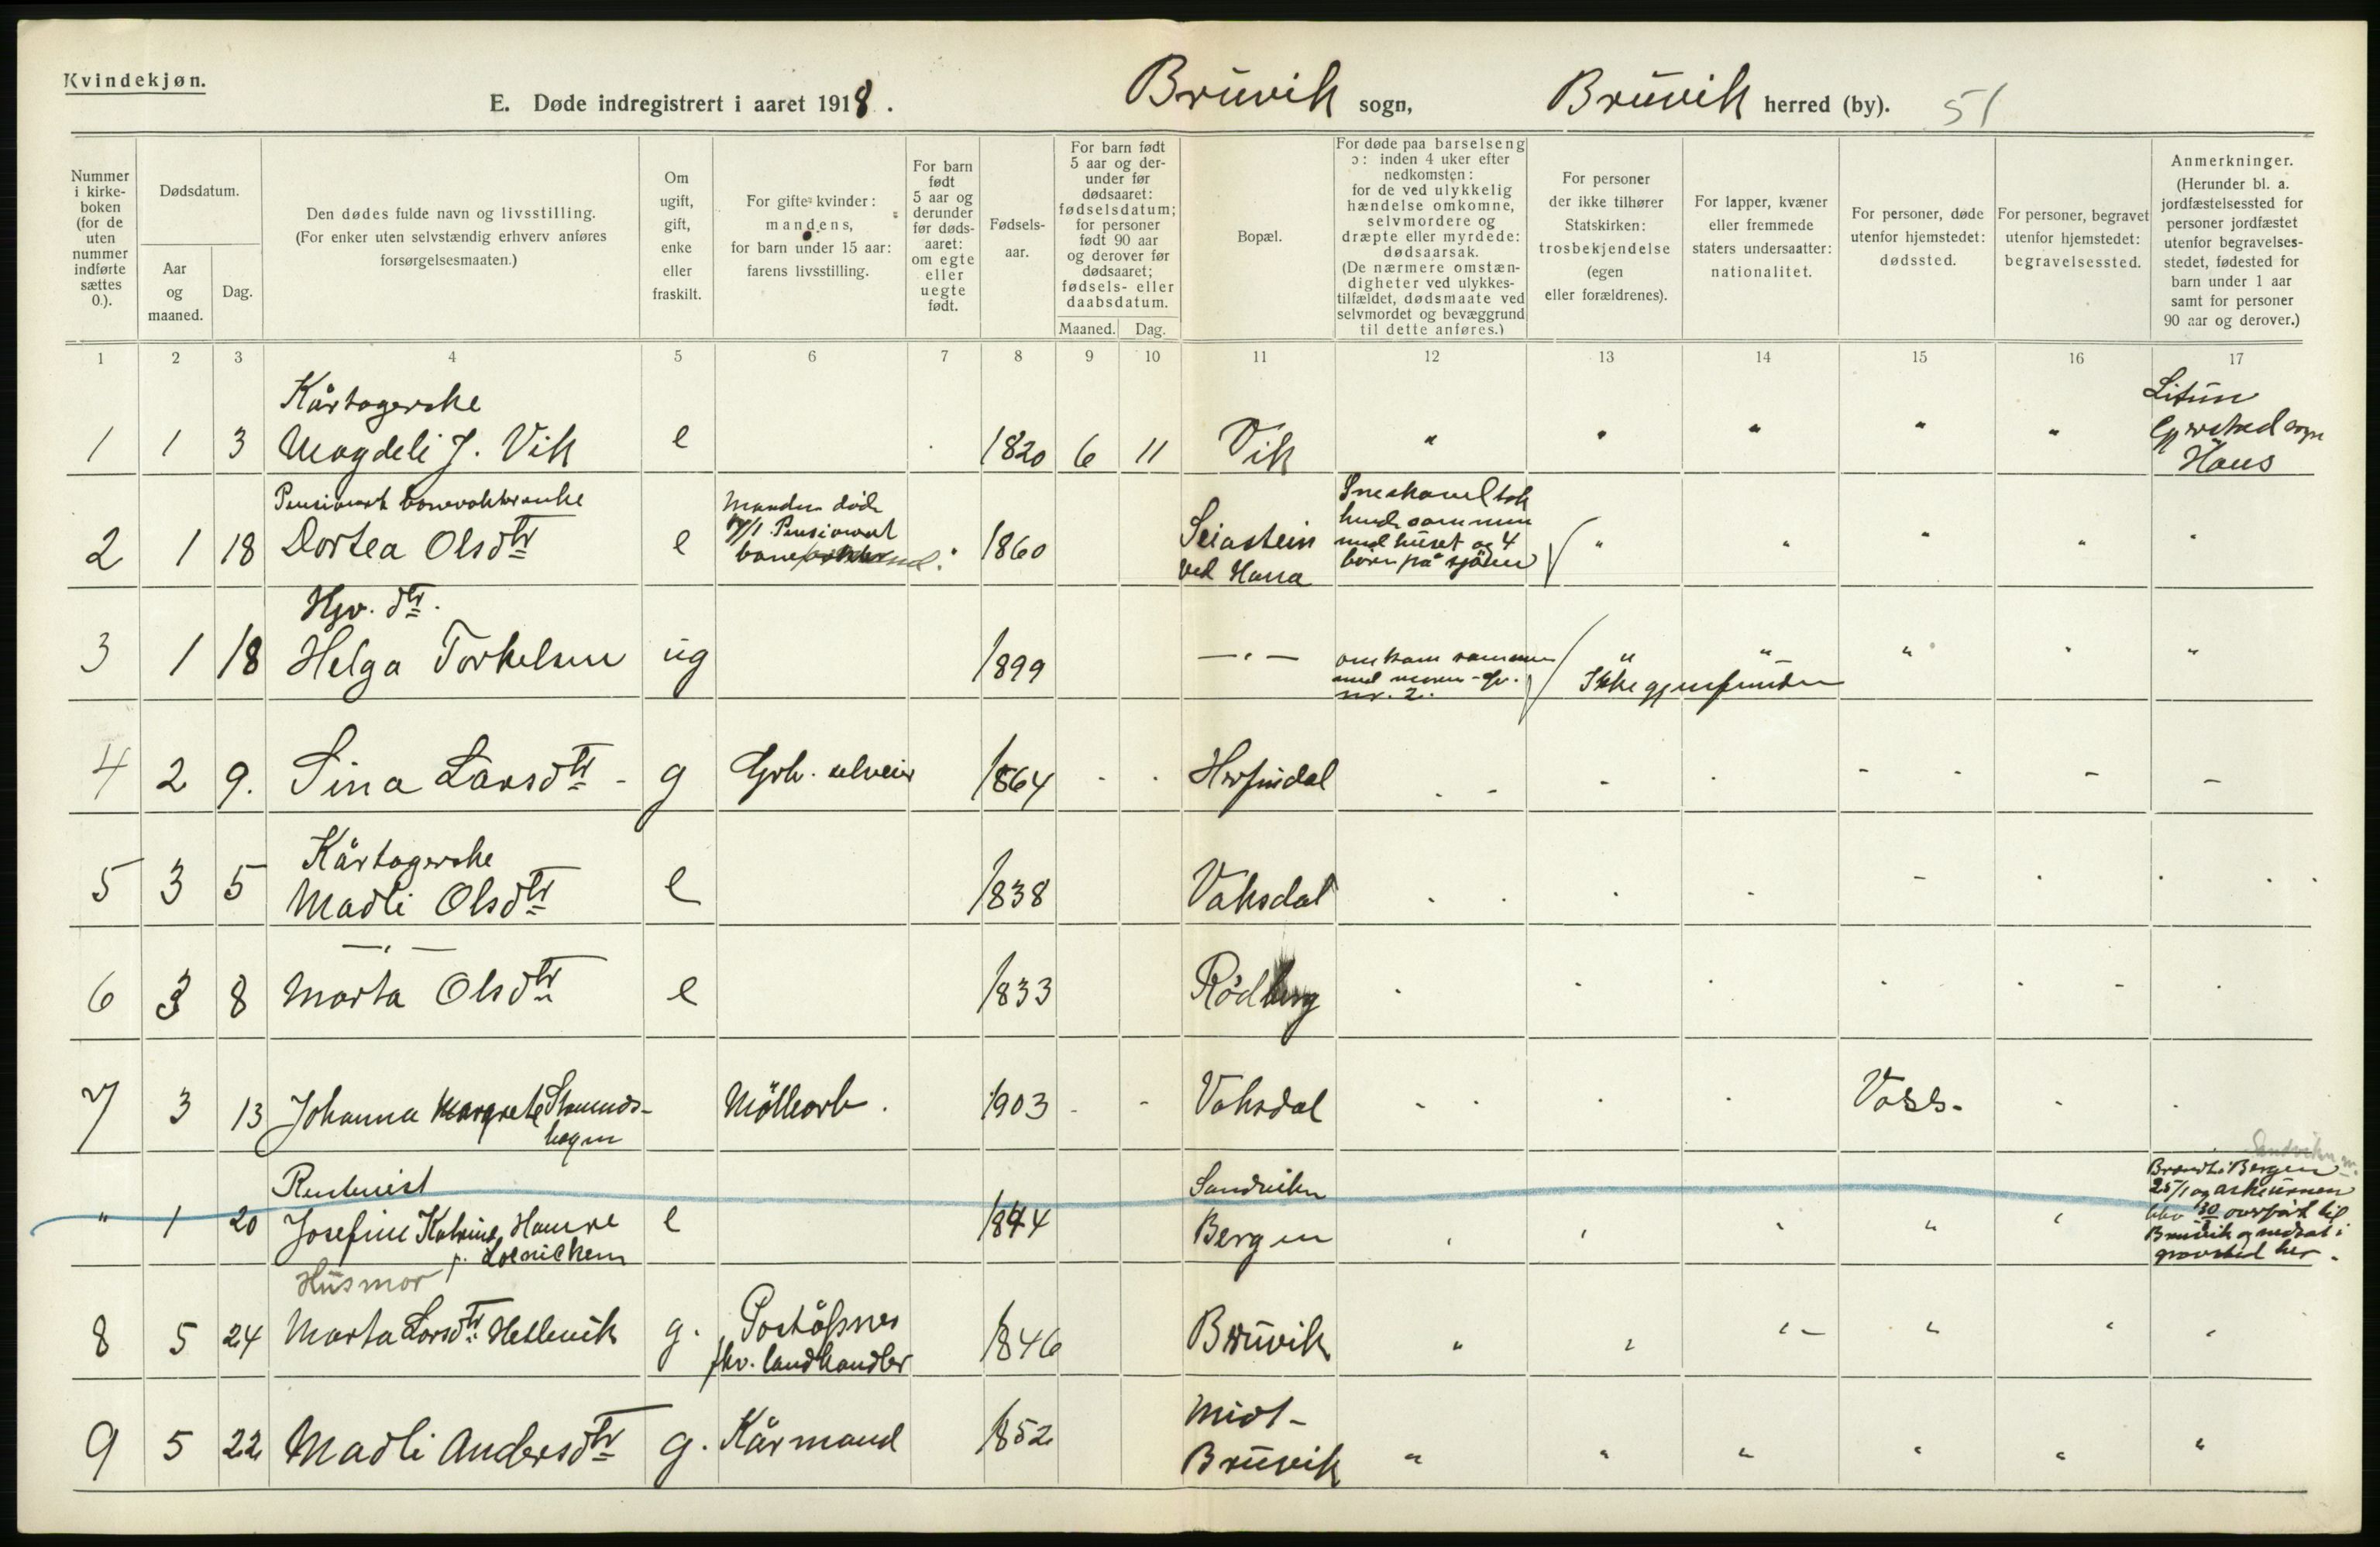 Kvindekjøn.
E. Døde indregistrert i aaret 1918. Bruvik sogn, Bruvik herred (by). 51
Nummer i kirke-boken (for de uten nummer indførte sættes 0.).
Dødsdatum.
Aar og maaned.
Dag.
Den dødes fulde navn og livsstilling.
(For enker uten selvstændig erhverv anføres
forsørgelsesmaaten.)
Om ugift, gift, enke eller fraskilt.
For gifte kvinder:
mandens,
for barn under 15 aar:
farens livsstilling.
For barn født 5 aar og derunder før døds-aaret: om egte eller uegte født.
Fødsels-aar.
For barn født 5 aar og der-under før dødsaaret: fødselsdatum; for personer født 90 aar og derover før dødsaaret; fødsels- eller daabsdatum.
Maaned. Dag.
Bopæl.
For døde paa barselseng
ɔ: inden 4 uker efter
nedkomsten:
for de ved ulykkelig
hændelse omkomne,
selvmordere og
dræpte eller myrdede:
dødsaarsak.
(De nærmere omstæn-
digheter ved ulykkes-
tilfældet, dødsmaate ved
selvmordet og bevæggrund
til dette anføres.)
For personer
der ikke tilhører
Statskirken:
trosbekjendelse
(egen
eller forældrenes).
For lapper, kvæner
eller fremmede
staters undersaatter:
nationalitet.
For personer, døde
utenfor hjemstedet:
dødssted.
For personer, begravet
utenfor hjemstedet:
begravelsessted.
Anmerkninger.
(Herunder bl. a.
jordfæstelsessted for
personer jordfæstet
utenfor begravelses-
stedet, fødested for
barn under 1 aar
samt for personer
90 aar og derover.)
1 2 3 4 5 6 7 8 9 10 11 12 13 14 15 16 17
Kårtagerske
1 1 3 Magdeli J. Vik e 1820 6 11 Vik " " " " "
sogn
Haus
Pensionert
2 1 18 Dortea Olsdtr e 1860 Seiastein
ved Hana
Manden død
Pensionert
Sneskavl tok
hende sammen
med huset og 4
børn på sjøen
Hjv. dtr.
3 1 18 Helga Torkelsen ug 1899 —"—
omkom sammen
med moren
nr. 2.
Ikke gjenfunden
4 2 9. Sina Larsdtr - g Grb. selveier 1864 Herfindal
Kårtagerske
5 3 5 Madli Olsdtr e 1838 Vaksdal
—"—
6 3 8 Marta Olsdtr e 1833 Rødberg
7 3 13 Johanna Margrete Møllearb. 1903 Vaksdal Voss.
Rentenist
" 1 20 Josefine Katrine Hamre e 1844 Sandviken
Bergen
Brændt i Bergen
25/1 og askeurnen
blev 30 overført til
Bruvik og nedsat i
gravsted her.
Husmor
8 5 24 Marta Larsdtr. Hellevik g. Poståpner
fhv. landhandler 1846 Bruvik
9 5 22 Madli Andersdtr g. Kårmand 1852 Midt-
Bruvik